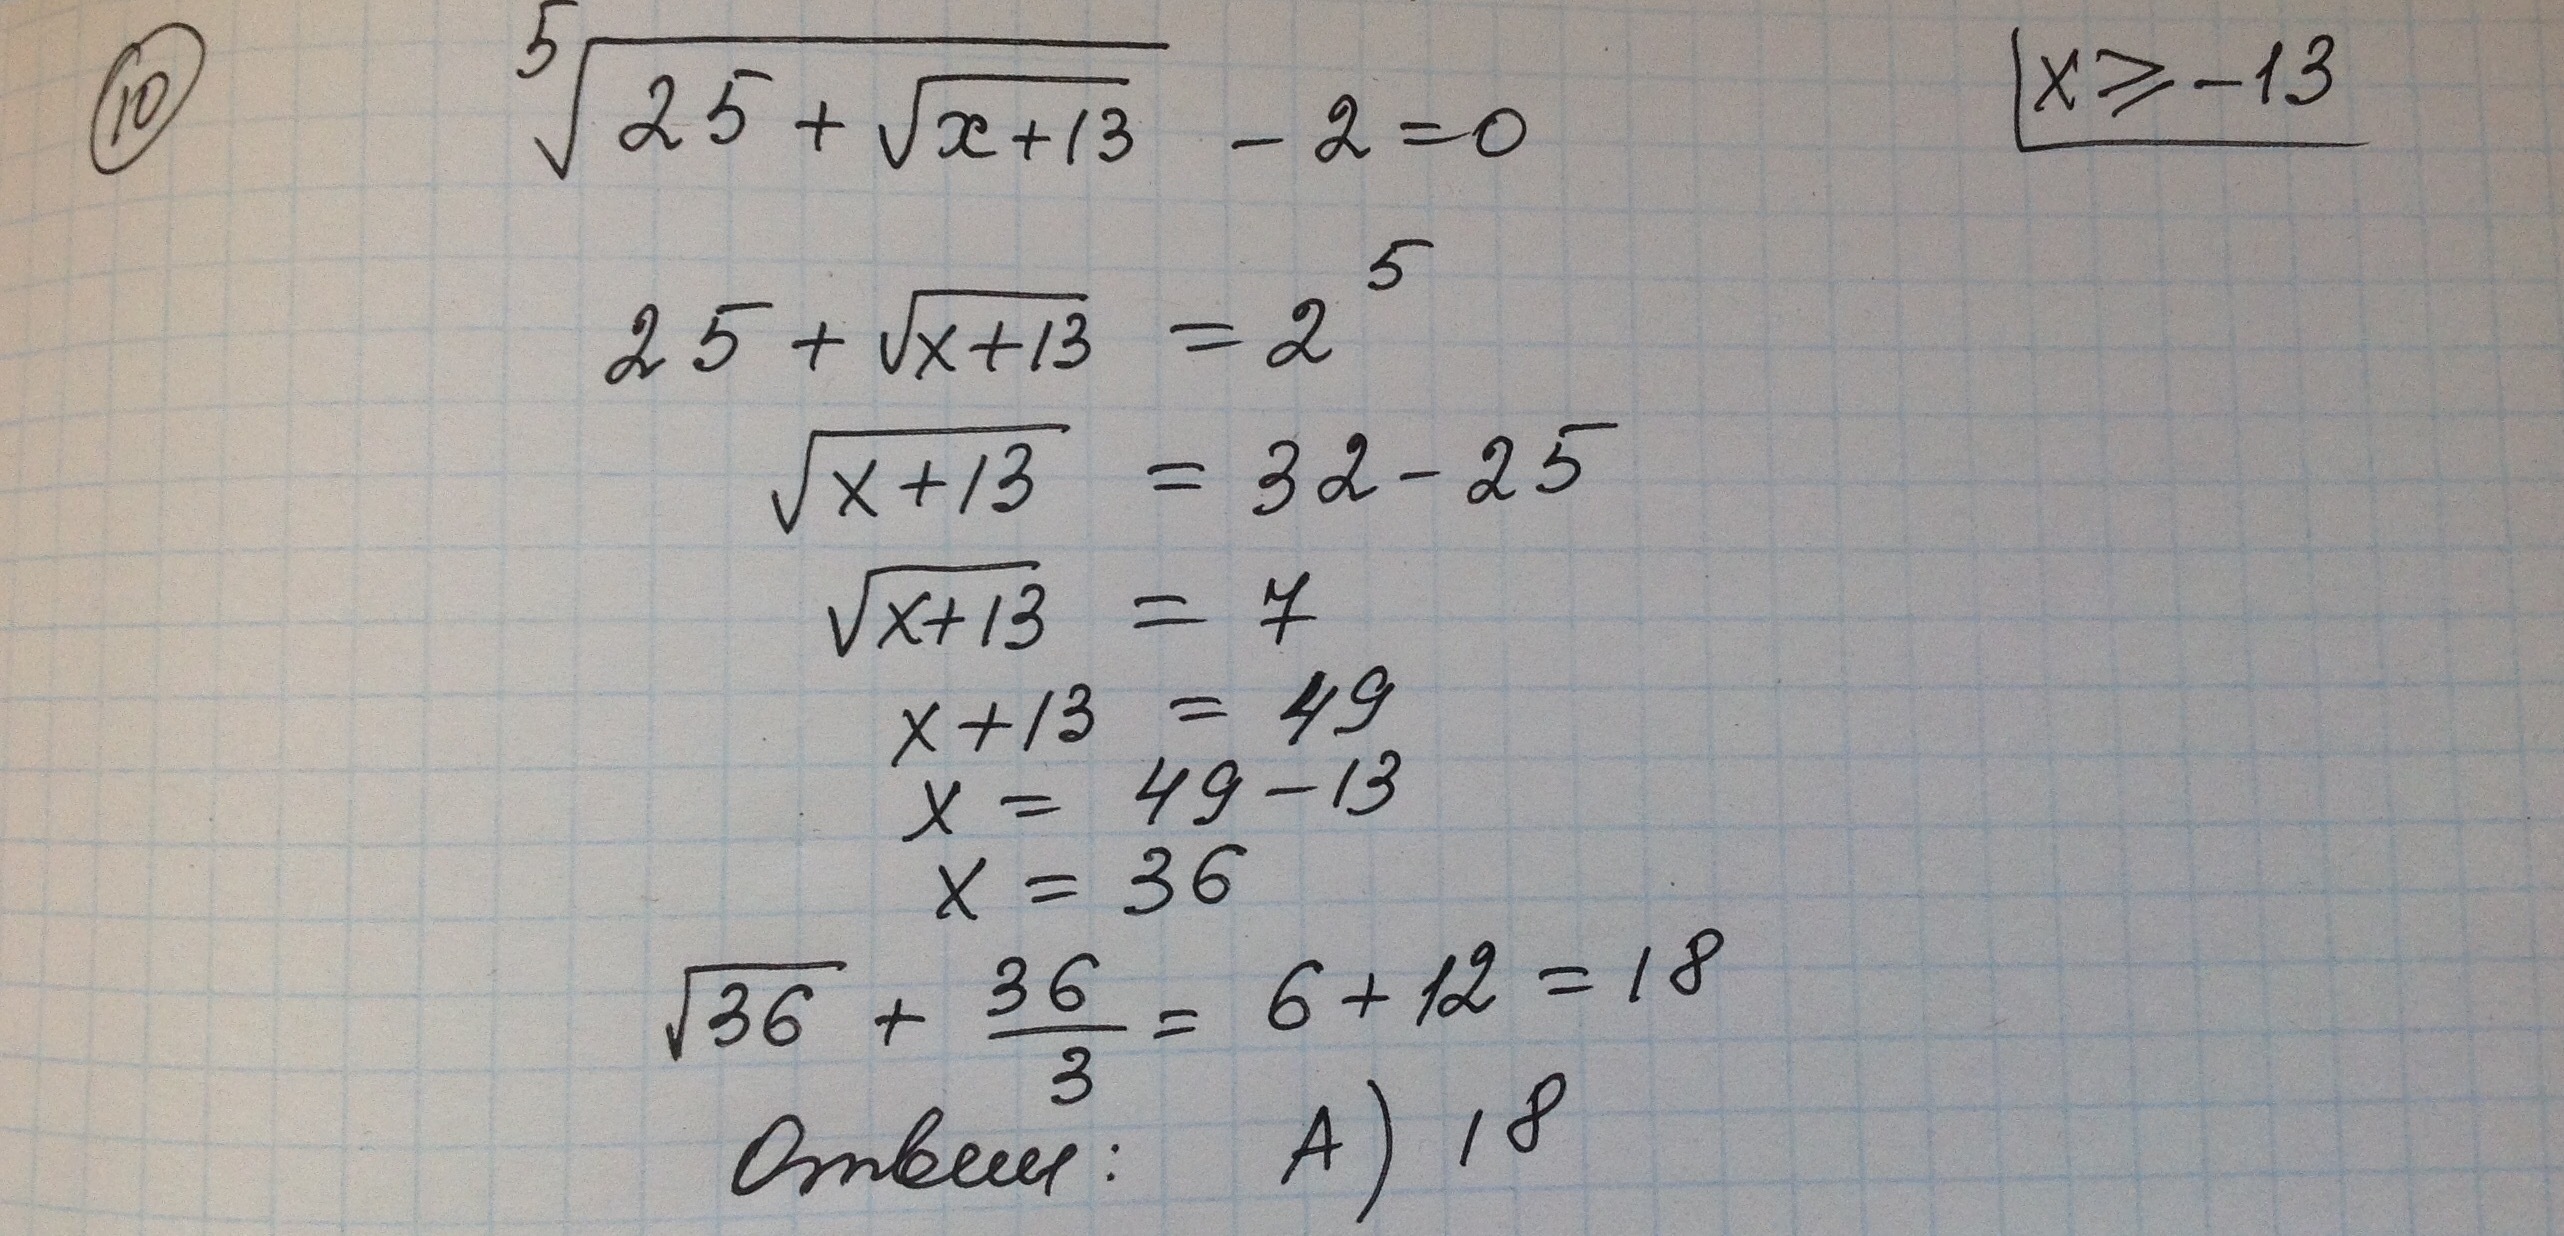 10 ⁵√(25 + √(x+13)) - 2 = 0 x ⩾ -13
25 + √(x+13) = 2⁵
√(x+13) = 32 - 25
√(x+13) = 7
x + 13 = 49
x = 49 - 13
x = 36
√36 + 36/3 = 6 + 12 = 18
Ответ: А) 18